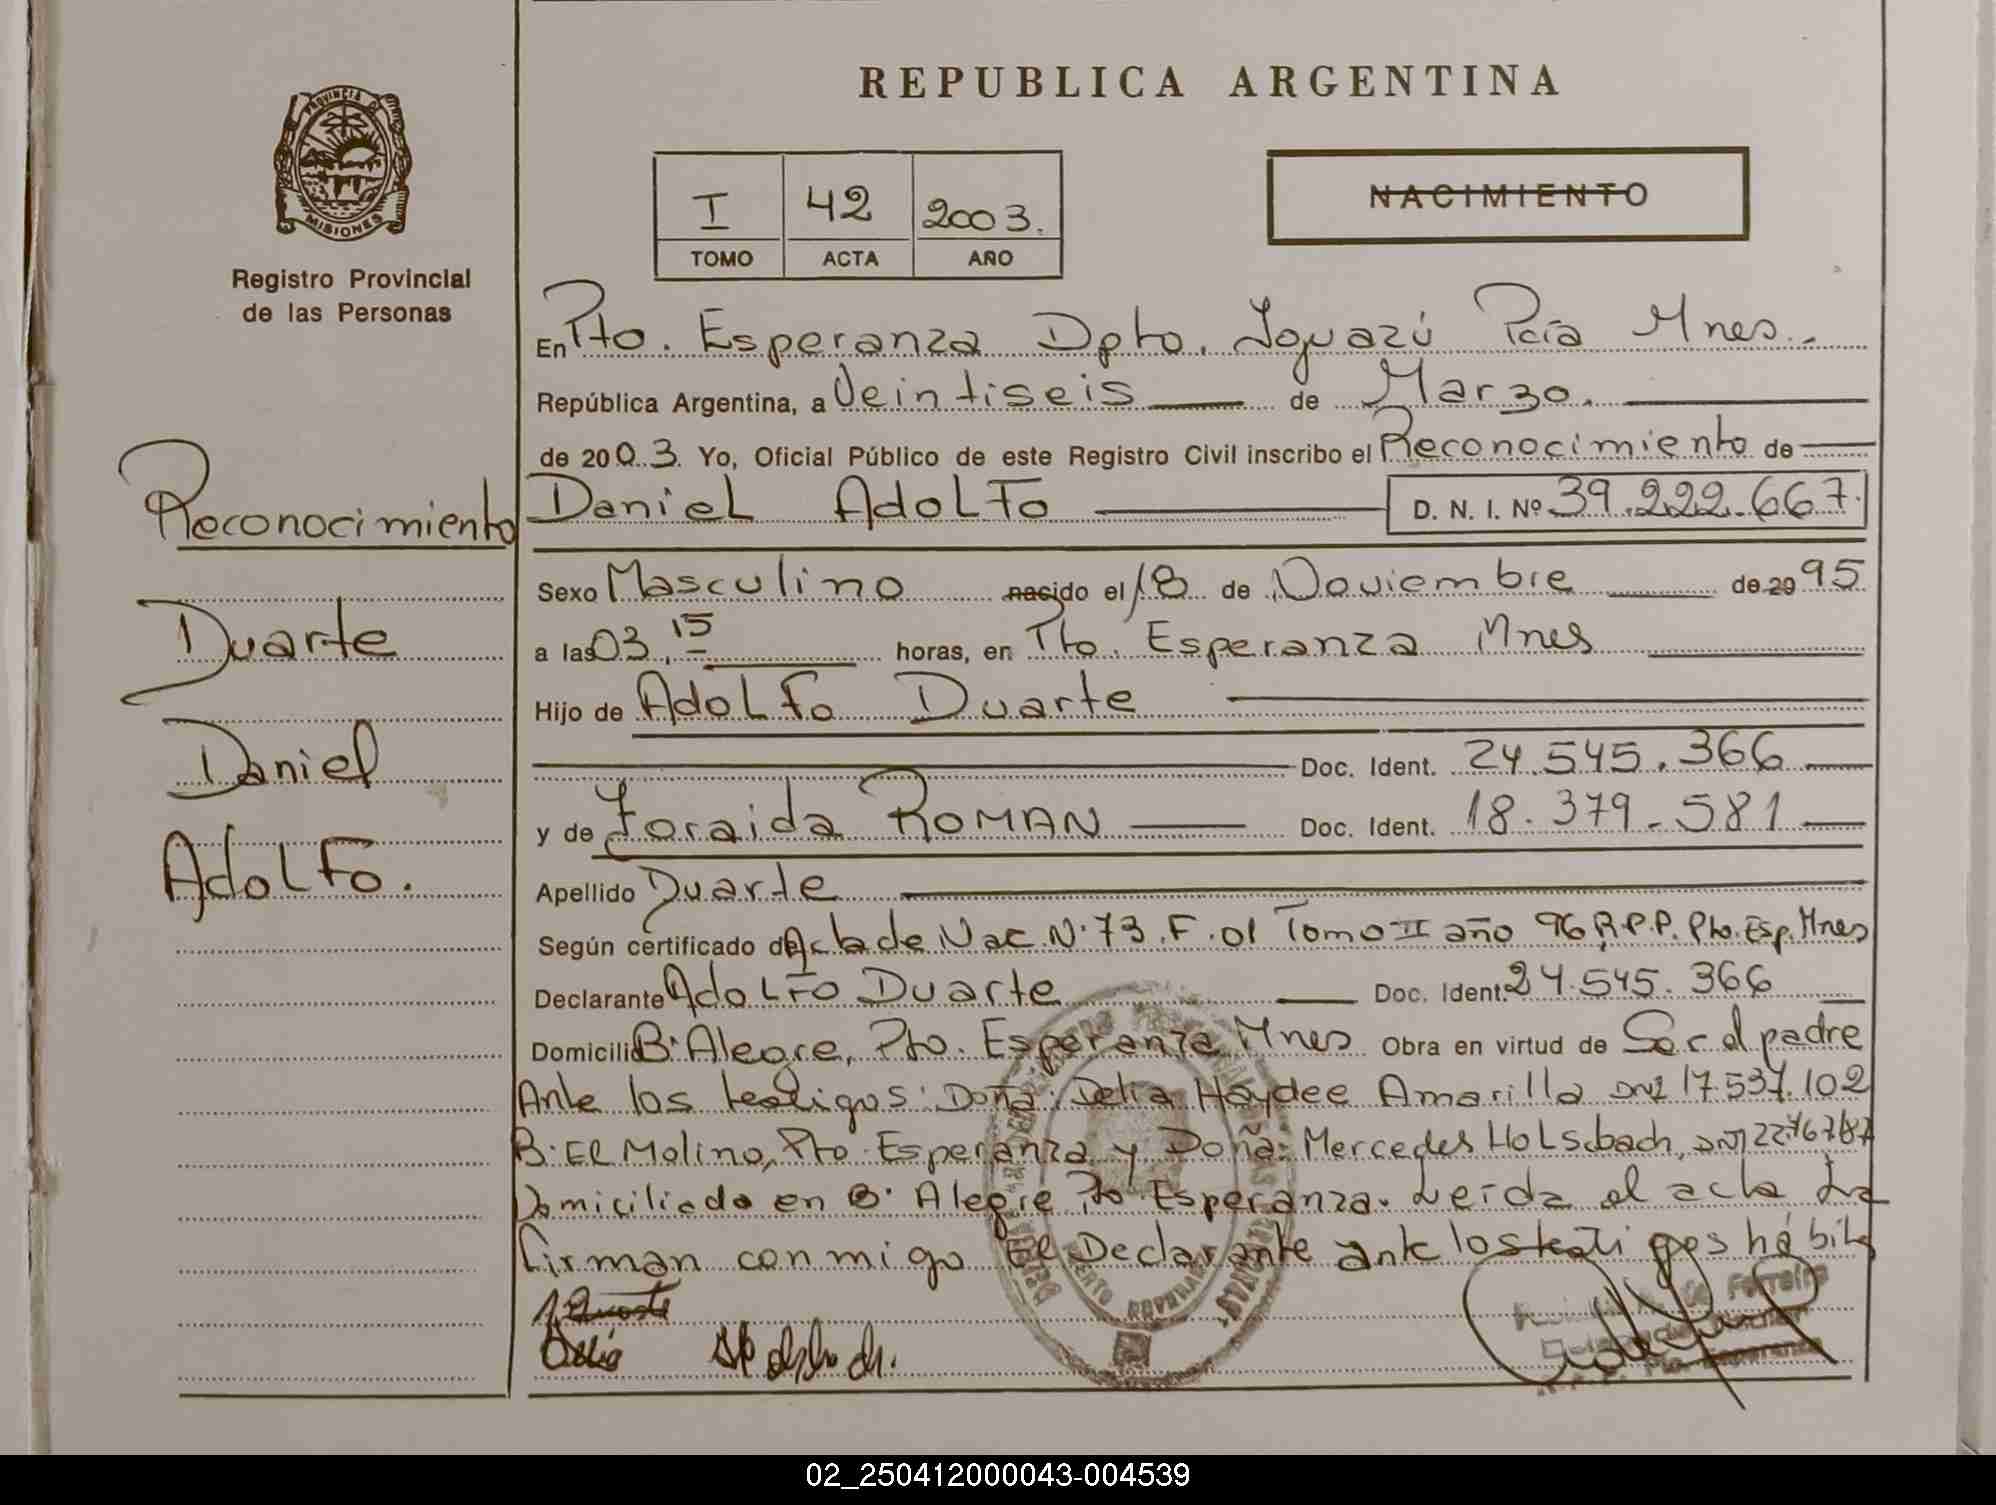 REPUBLICA ARGENTINA
PROVINCIA D
MISIONES
Registro Provincial
de las Personas
I 42 2003.
TOMO ACTA AÑO
NACIMIENTO
En Pto. Esperanza Dpto. Iguazú Pcia Mnes.
República Argentina, a Veintiseis de Marzo.
de 2003. Yo, Oficial Público de este Registro Civil inscribo el Reconocimiento de
Daniel Adolfo D. N. I. Nº 39.222.667.
Reconocimiento
Duarte
Daniel
Adolfo.
Sexo Masculino nacido el 18 de Noviembre de 20 95
a las 03,15 horas, en Pto. Esperanza Mnes
Hijo de Adolfo Duarte
Doc. Ident. 24.545.366
y de Zoraida ROMAN Doc. Ident. 18.379.581
Apellido Duarte
Según certificado de Acta de Nac. N· 73. F. 01 Tomo II año 96 R.P.P. Pto. Esp. Mnes
Declarante Adolfo Duarte Doc. Ident. 24.545.366
Domicilio B· Alegre, Pto. Esperanza Mnes Obra en virtud de Ser el padre
Ante los testigos: Doña: Delia Haydee Amarilla DNI 17.537.102
B· El Molino, Pto. Esperanza y Doña: Mercedes Holsbach, DNI
Domiciliada en B· Alegre Pto. Esperanza. Leída el acta La
firman conmigo El Declarante ante los testigos hábiles
A. Duarte
Delia
PUERTO ESPERANZA
Ferreira
Pto. Esperanza
02_250412000043-004539